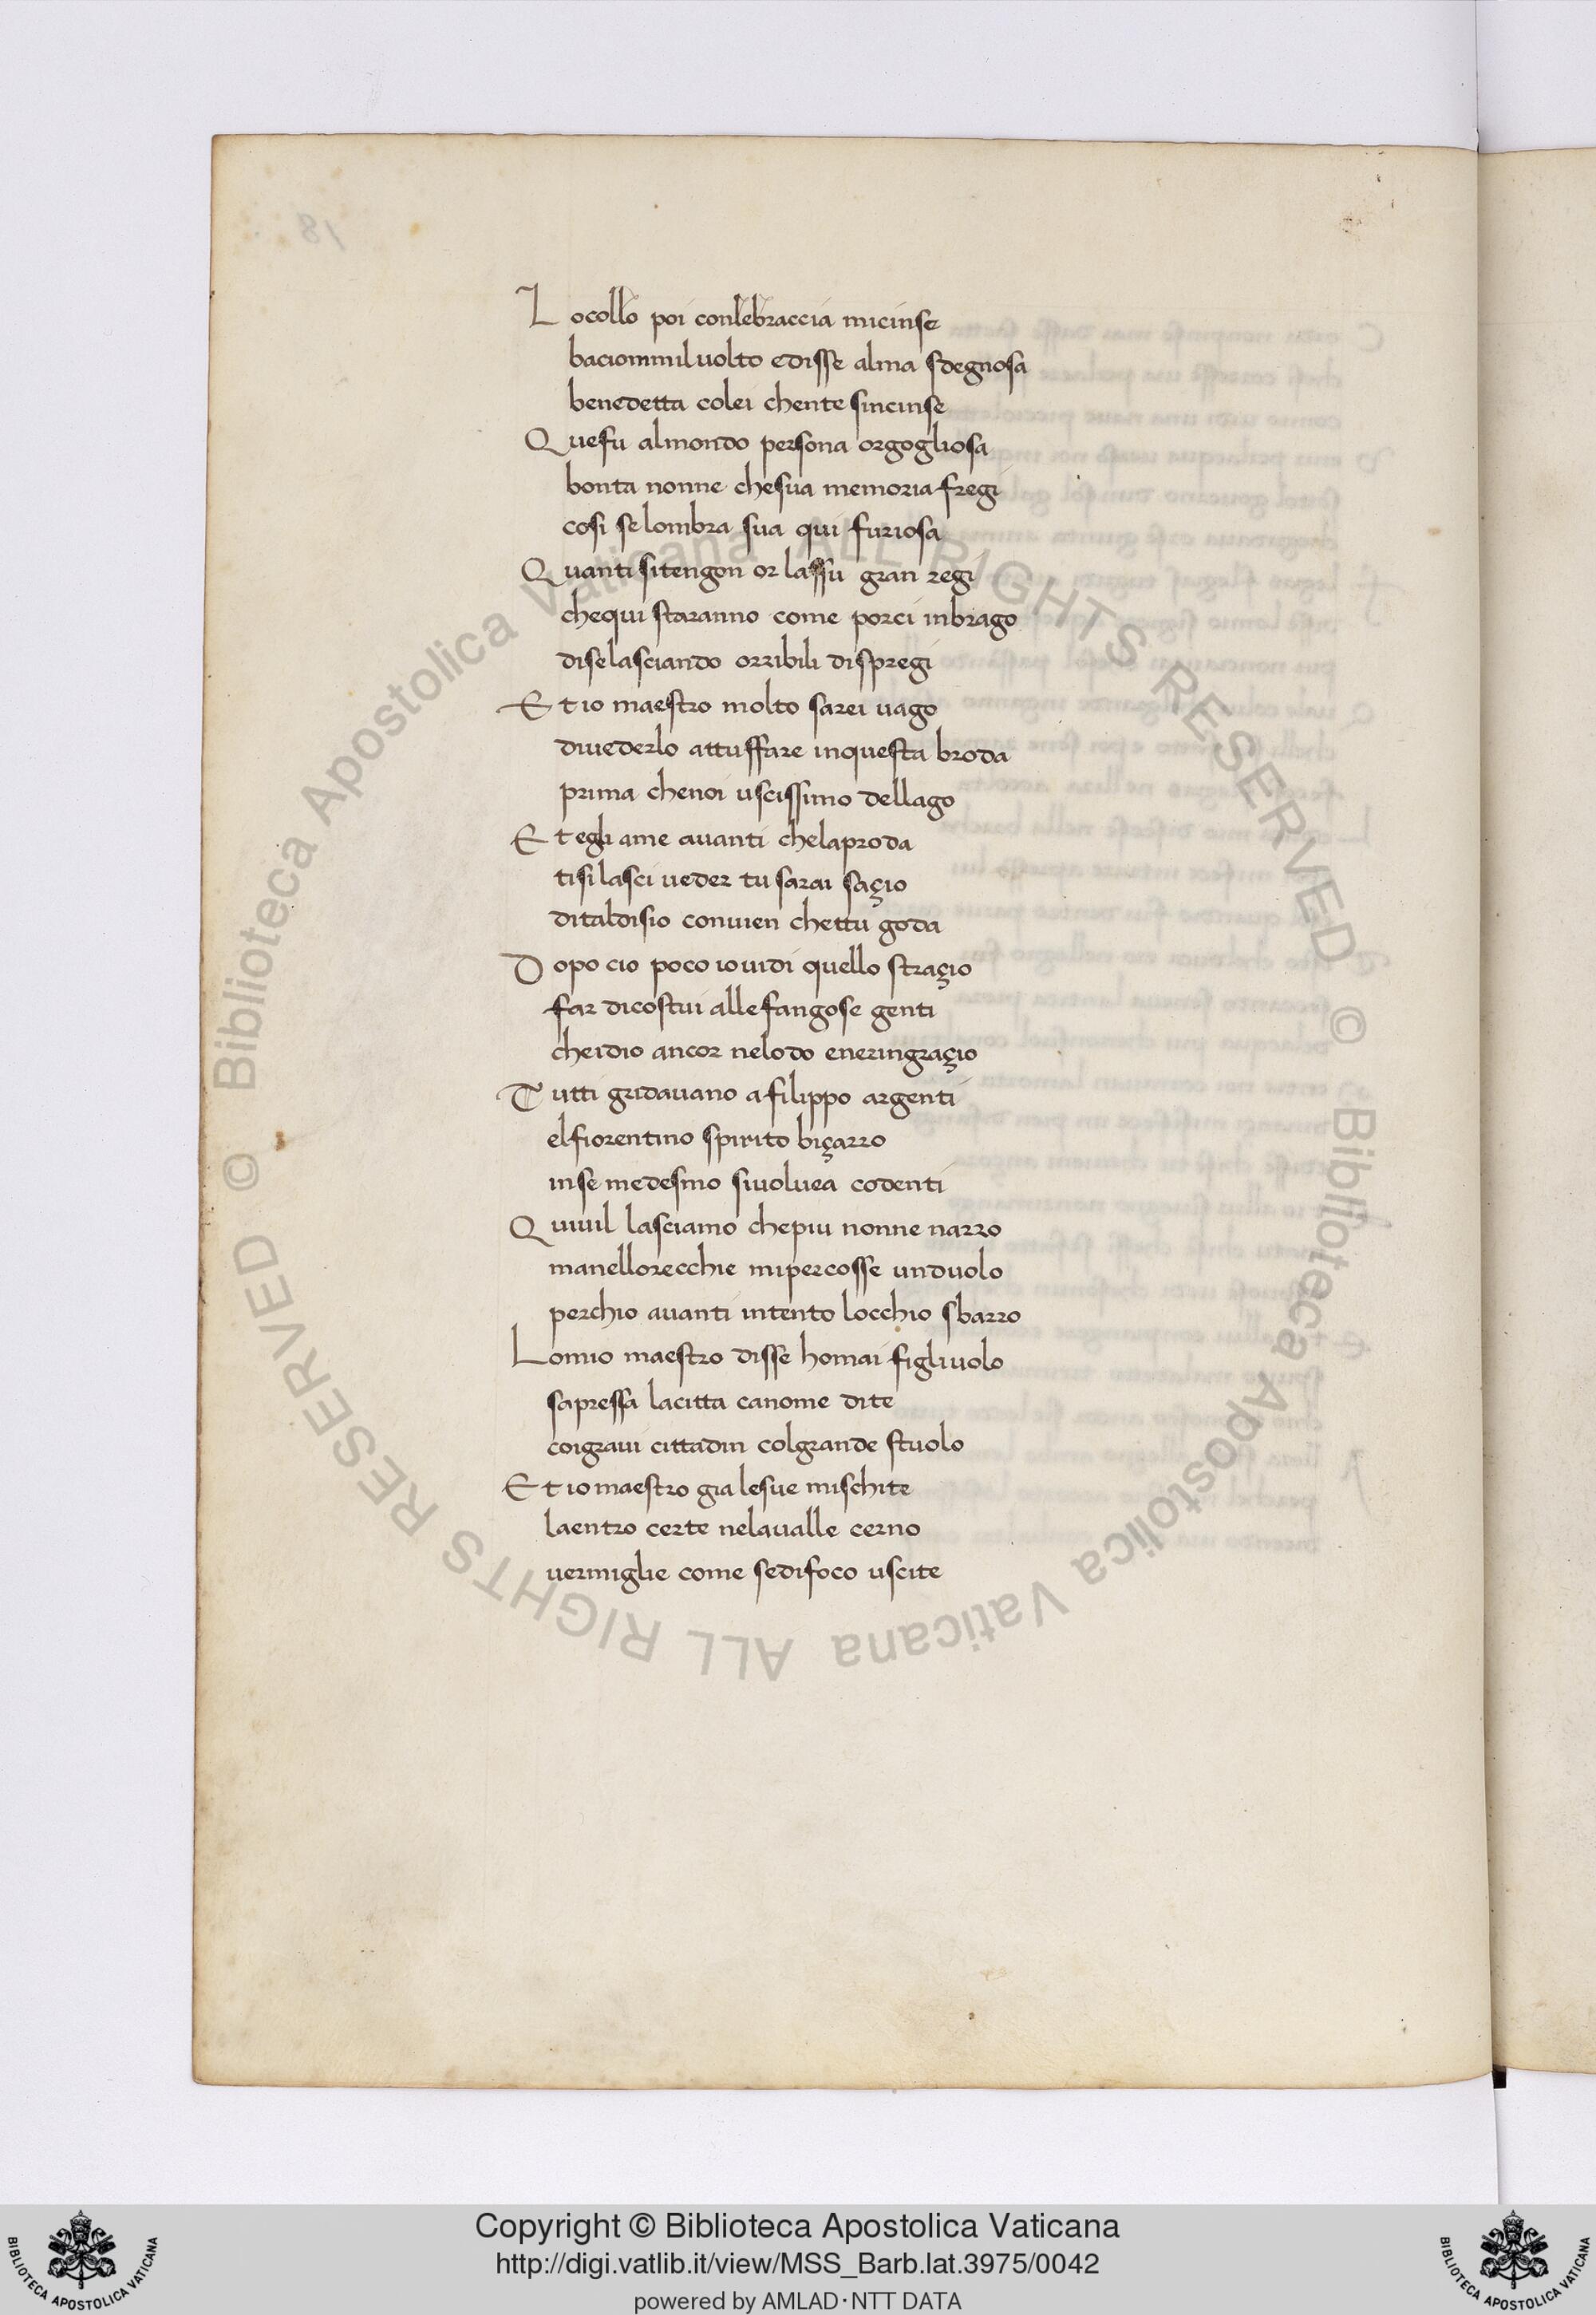 Locollo poi conlebraccia micinse
baciommiluolto edisse alma sdegnosa
benedetta colei chente sincinse
Quefu almondo persona orgogliosa
bonta nonne chesua memoria fregi
cosi selombra sua qui furiosa
Quanti sitengon or lassu gran regi
chequi staranno come porci inbrago
diselasciando orribili dispregi
Et io maestro molto sarei uago
diuederlo attuffare inquesta broda
prima chenoi uscissimo dellago
Et egli ame auanti chelaproda
tisilasci ueder tu sarai saçio
ditaldisio conuien chettu goda
Dopo cio poco iouidi quello straçio
far dicostui allefangose genti
cheidio ancor nelodo eneringraçio
Tutti gridauano afilippo argenti
elfiorentino spirito biçarro
inse medesmo siuoluea codenti
Quiuil lasciamo chepiu nonne narro
manellorecchie mipercosse unduolo
perchio auanti intento locchio sbarro
Lomio maestro disse homai figliuolo
sapressa lacitta canome dite
coigraui cittadin colgrande stuolo
Et io maestro gia lesue mischite
laentro certe nelaualle cerno
uermiglie come sedifoco uscite
18
© Biblioteca Apostolica Vaticana ALL RIGHTS RESERVED © Biblioteca Apostolica Vaticana ALL RIGHTS RESERVED
Copyright © Biblioteca Apostolica Vaticana
http://digi.vatlib.it/view/MSS_Barb.lat.3975/0042
powered by AMLAD·NTT DATA
BIBLIOTECA APOSTOLICA VATICANA
BIBLIOTECA APOSTOLICA VATICANA